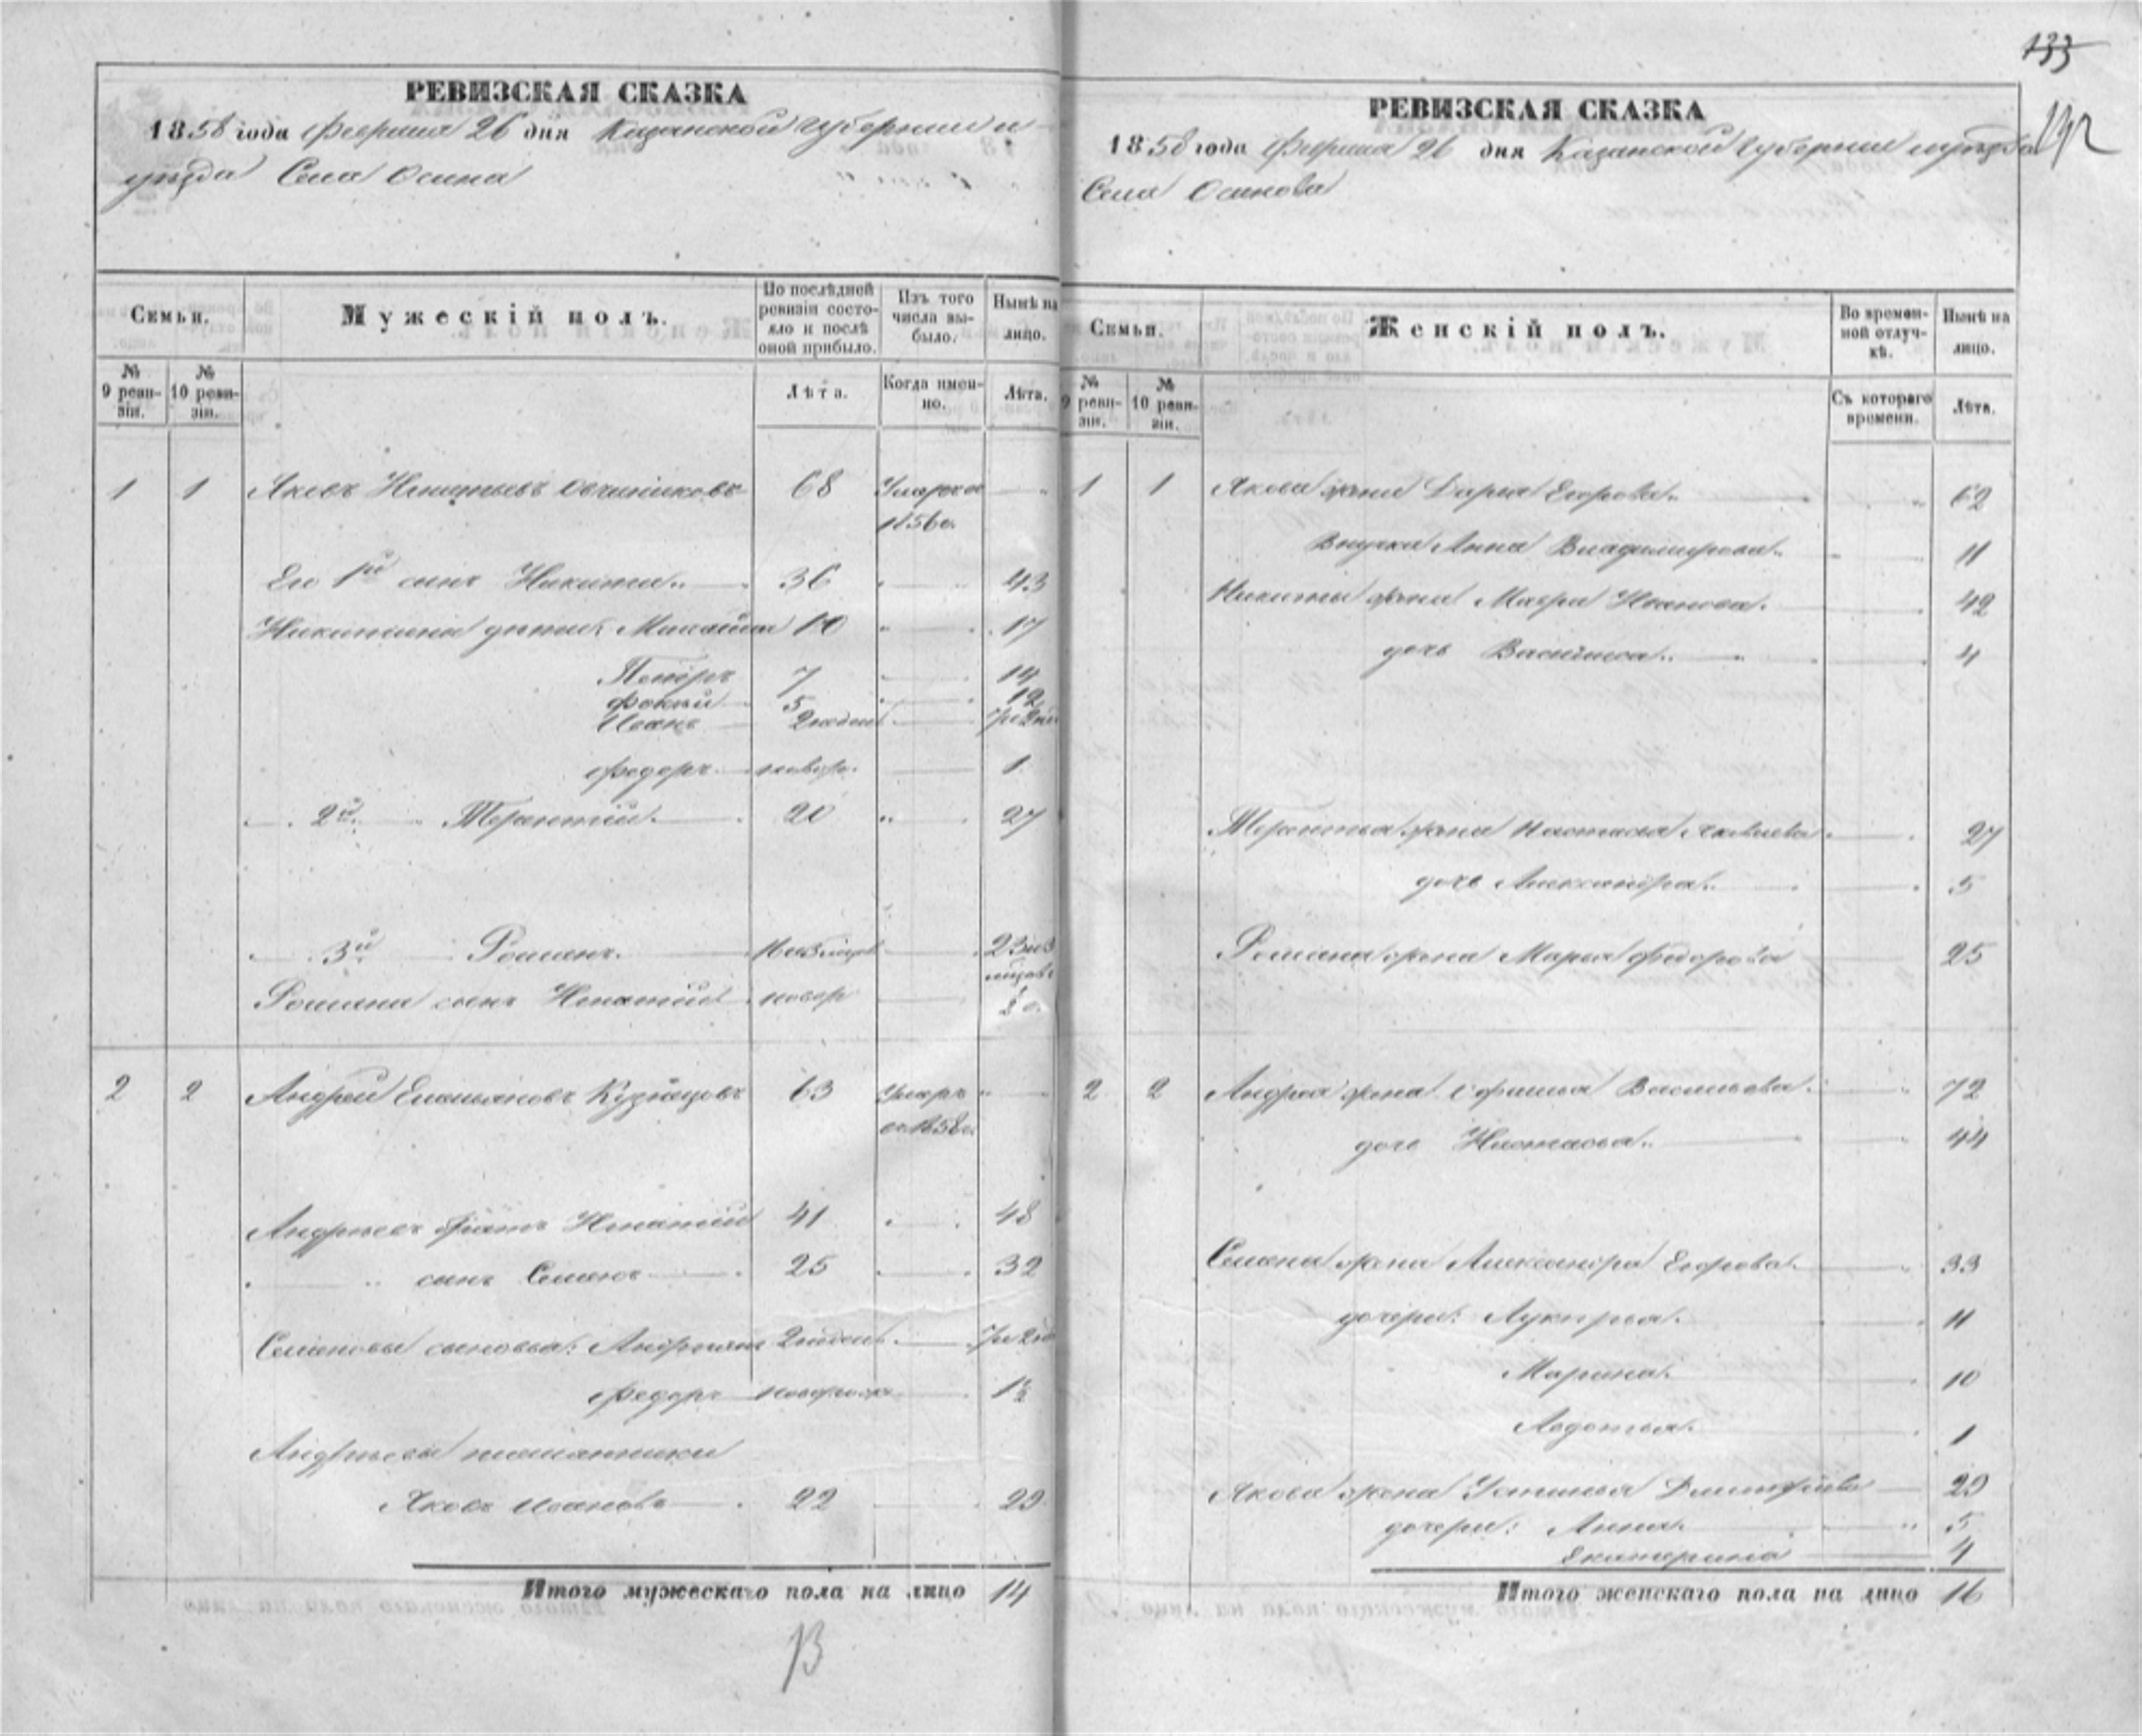 133
192
РЕВИЗСКАЯ СКАЗКА
1858 года февраля 26 дня Казанской Губернии и
уезда Села Осина
Семьи.
Мужескій полъ.
По послѣдней ревизіи состояло и послѣ оной прибыло.
Изъ того числа выбыло.
Нынѣ на лицо.
№ 9 ревизіи.
№ 10 ревизіи.
Лѣта.
Когда именно.
Лѣта.
1 1 Яковъ Игнатьевъ Овчинниковъ 68 Умеръ в
1856 г.
Его 1й сынъ Никита 36 43
Никитины дѣти: Михайла 10 17
Петръ 7 14
Фокей 5 12
Иванъ
Федоръ новор. 1
2й Терентій 20 27
3й Романъ
Романа сынъ Игнатій новор
2 2 Андрей Емельяновъ Кузнецовъ 63 Умеръ
Андреевъ братъ Игнатій 41 48
сынъ Семенъ 25 32
Семеновы сыновья: Андреянъ
Федоръ 1½
Андреевы племянники
Яковъ Ивановъ 22 29
Итого мужескаго пола на лицо 14
13
РЕВИЗСКАЯ СКАЗКА
1858 года февраля 26 дня Казанской Губернии и уѣзда
Села Осинова
Семьи.
Женскій полъ.
Во временной отлучкѣ.
Нынѣ на лицо.
№ 9 ревизіи.
№ 10 ревизіи.
Съ котораго времени.
Лѣта.
1 1 Якова жена Дарья Егорова 62
Внучка Анна Владимирова 11
Никиты жена Мавра Иванова 42
дочь Василиса 4
Терентья жена Настасья Яковлева 27
дочь Александра 5
Романа жена Марья Федорова 25
2 2 Андрея жена Софинья Васильева 72
дочь Настасья 44
Семена жена Александра Егорова 33
дочери: Лукерья 11
Марина 10
Авдотья 1
Якова жена Устинья Дмитріева 29
дочери: Анна 5
Екатерина 4
Итого женскаго пола на лицо 16